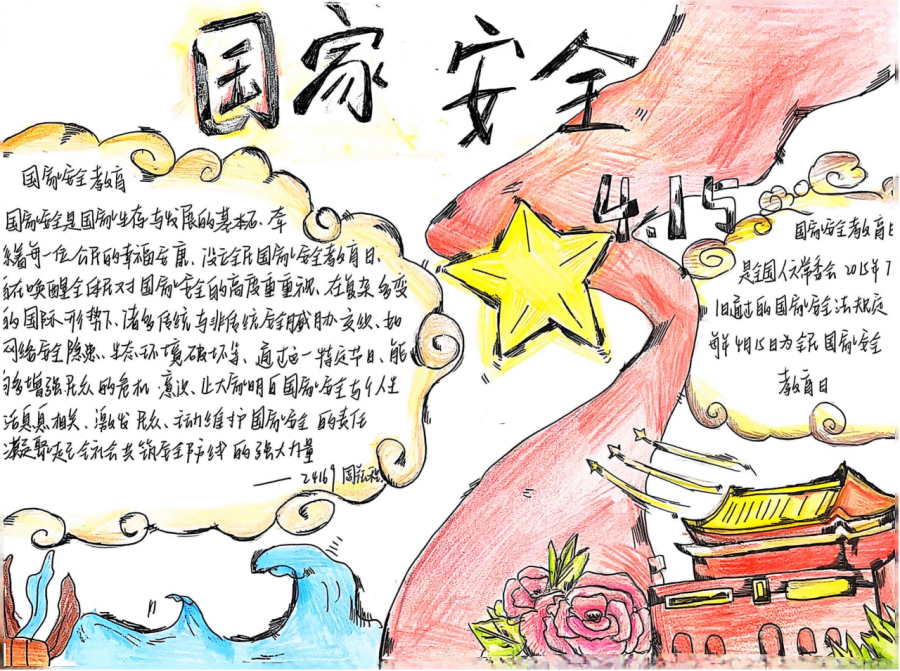 国家安全
4.15
国家安全教育
国家安全是国家生存与发展的基石、牵
系着每一位公民的幸福安康、设立全民国家安全教育日、
在唤醒全体民对国家安全的高度重视、在复杂多变
的国际形势下、诸多传统与非传统安全威胁交织、如
网络安全隐患、生态环境破坏等、通过这一特定节日、能
够增强民众的危机意识、让大家明白国家安全与个人生
活息息相关、激发民众、主动维护国家安全的责任
凝聚起全社会共筑安全防线的强大力量
——24169
国家安全教育日
是全国人大常委会2015年7
1日通过的国家安全法规定
每年4月15日为全民国家安全
教育日